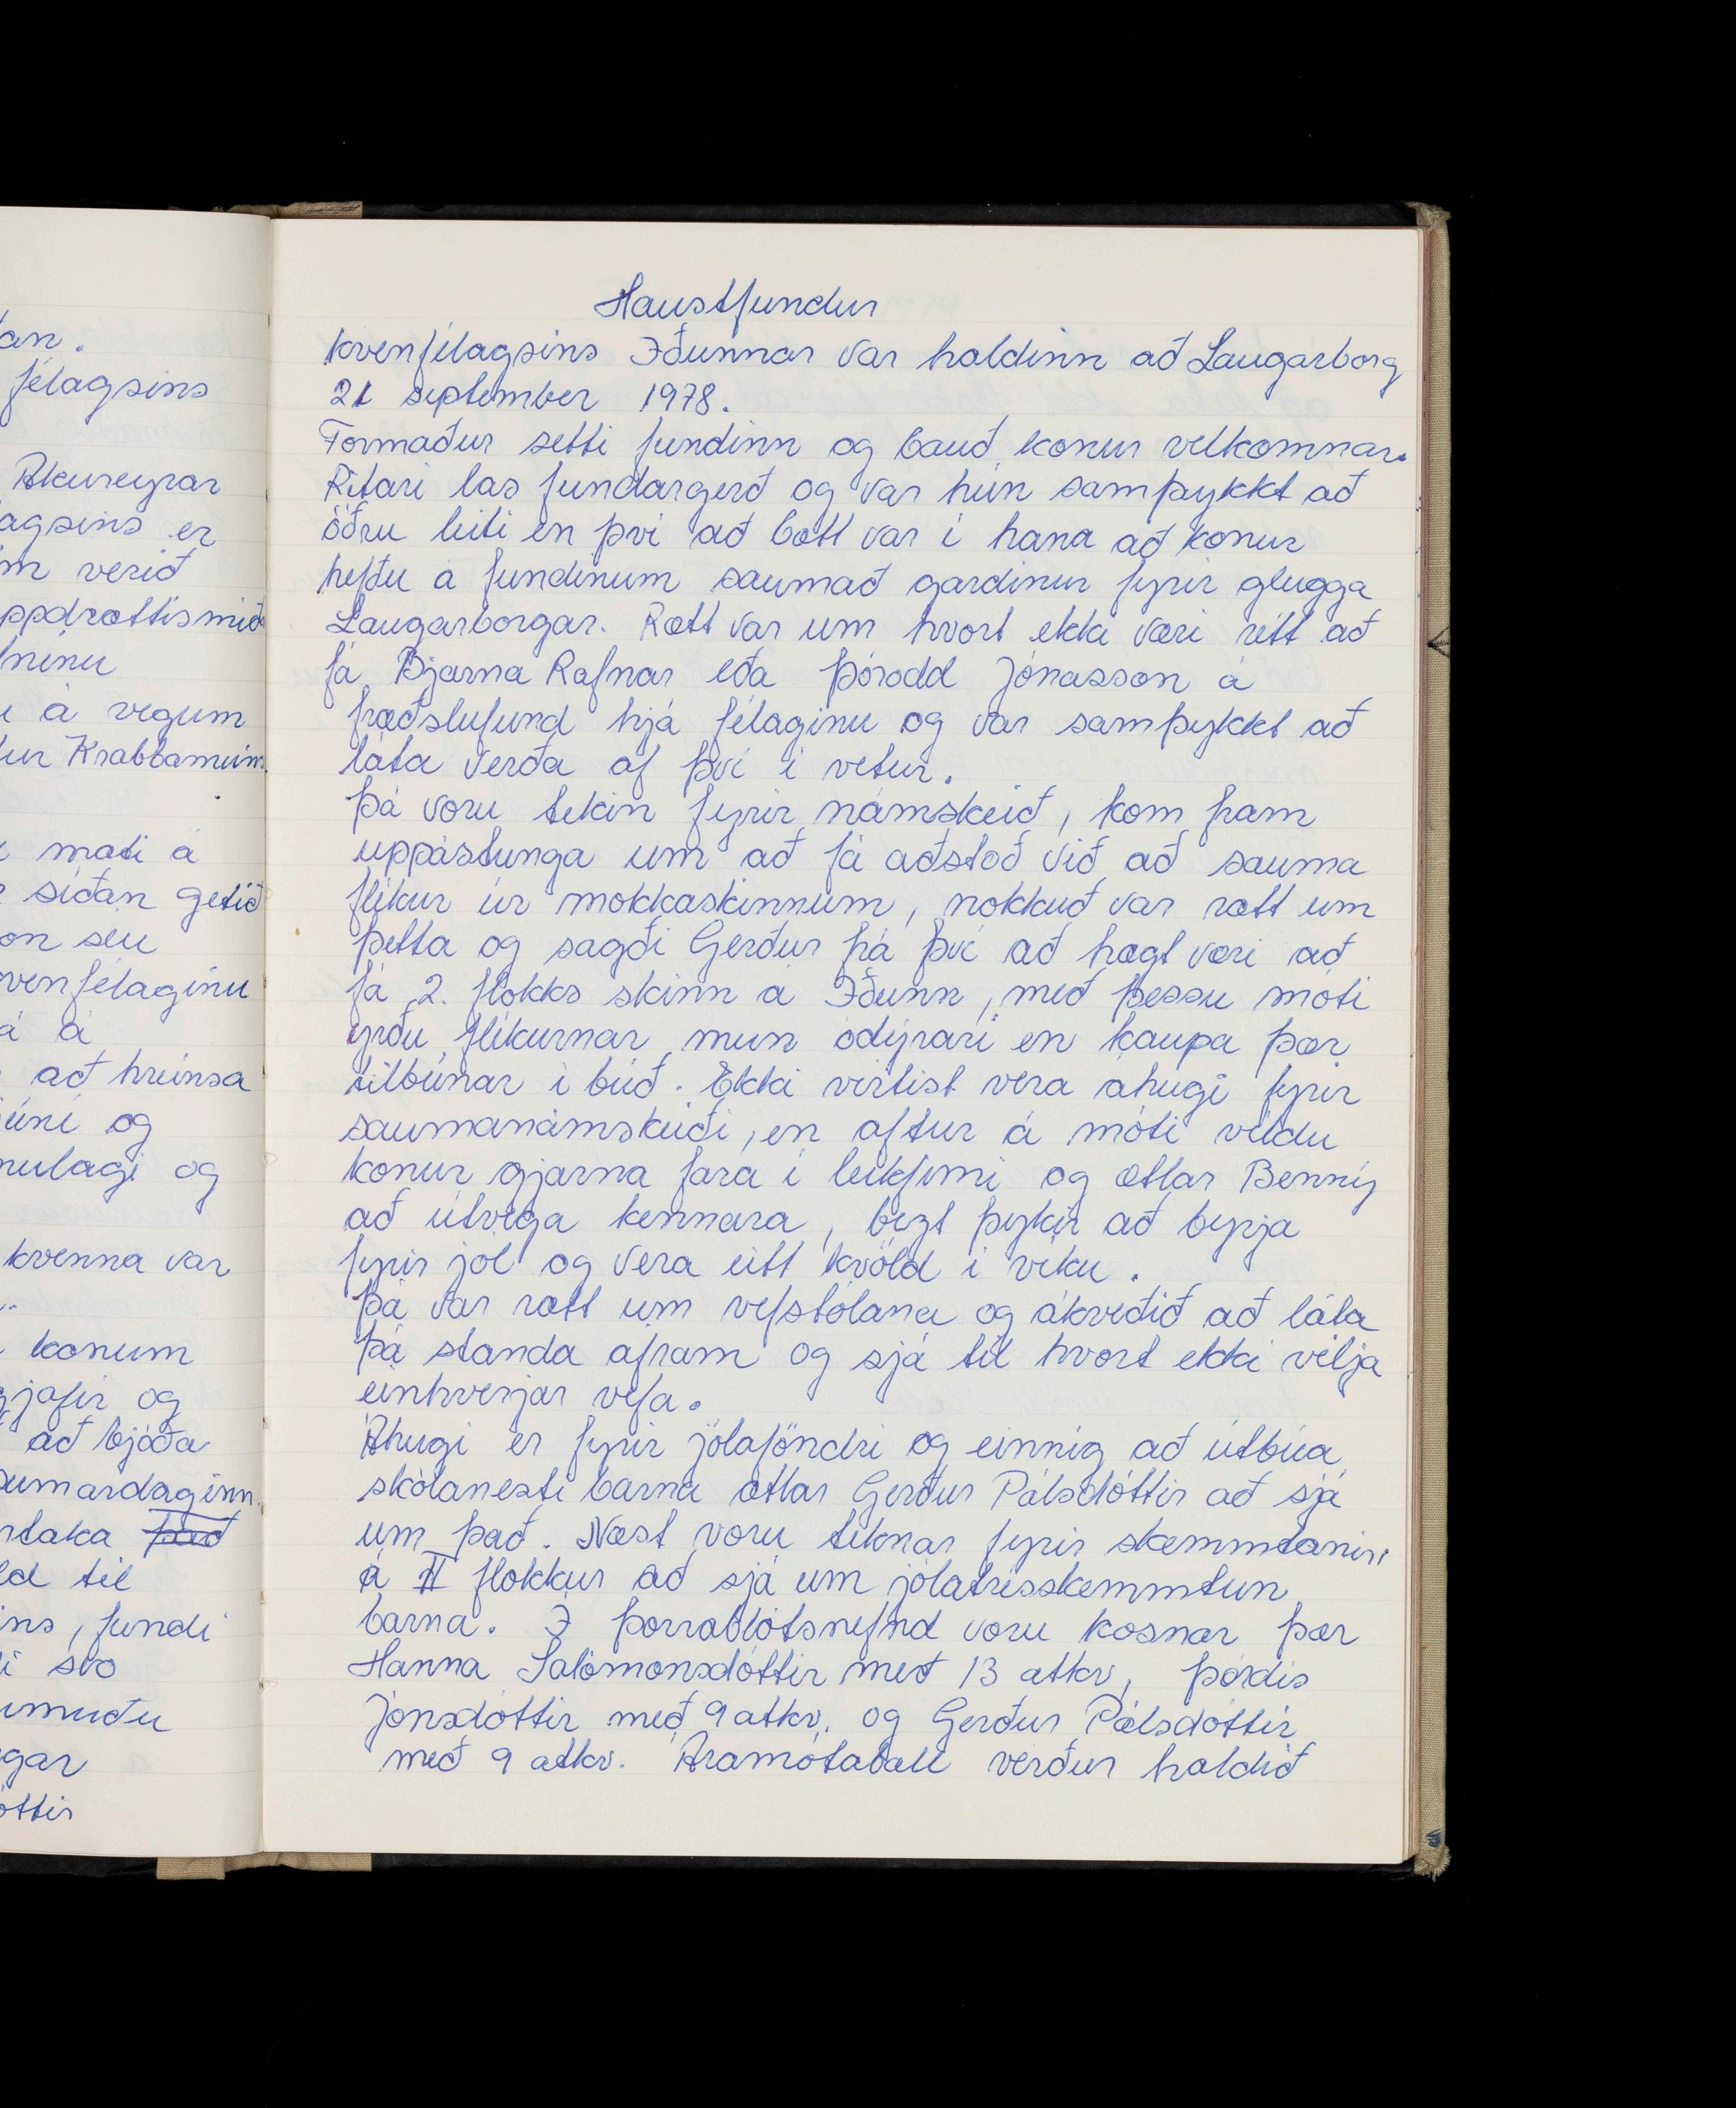 an.
félagsins
Akureyrar
agsins er
m verið
ppdrættismið
u á vegum
ur Krabbameins
mati á
síðan getið
on séu
venfélaginu
á á
að hreinsa
júní og
nulagi og
kvenna var
konum
gjafir og
að bjóða
sumardaginn
rtaka það
ld til
ins, fundi
i svo
umuðu
gar
óttir
Haustfundur
kvenfélagsins Iðunnar var haldinn að Laugarborg
21 september 1978.
Formaður setti fundinn og bauð konur velkomnar.
Ritari las fundargerð og var hún samþykkt að
öðru leiti en því að bætt var í hana að konur
hefðu á fundinum saumað gardínur fyrir glugga
Laugarborgar. Rætt var um hvort ekki væri rétt að
fá Bjarna Rafnar eða Þórodd Jónasson á
fræðslufund hjá félaginu og var samþykkt að
láta verða af því í vetur.
Þá voru tekin fyrir námskeið, kom fram
uppástunga um að fá aðstoð við að sauma
flíkur úr mokkaskinnum, nokkuð var rætt um
þetta og sagði Gerður frá því að hægt væri að
fá 2. flokks skinn á Iðunn, með þessu móti
yrðu flíkurnar mun ódýrari en kaupa þær
tilbúnar í búð. Ekki virtist vera áhugi fyrir
saumanámskeiði, en aftur á móti vildu
konur gjarna fara í leikfimi og ætlar Benný
að útvega kennara, bezt þykir að byrja
fyrir jól og vera eitt kvöld í viku.
Þá var rætt um vefstólana og ákveðið að láta
þá standa áfram og sjá til hvort ekki vilja
einhverjar vefa.
Áhugi er fyrir jólaföndri og einnig að útbúa
skólanesti barna ætlar Gerður Pálsdóttir að sjá
um það. Næst voru teknar fyrir skemmtanir,
á II flokkur að sjá um jólatrésskemmtun
barna. Í þorrablótsnefnd voru kosnar þær
Hanna Salómonsdóttir með 13 atkv, Þórdís
Jónsdóttir með 9 atkv. og Gerður Pálsdóttir
með 9 atkv. Áramótaball verður haldið